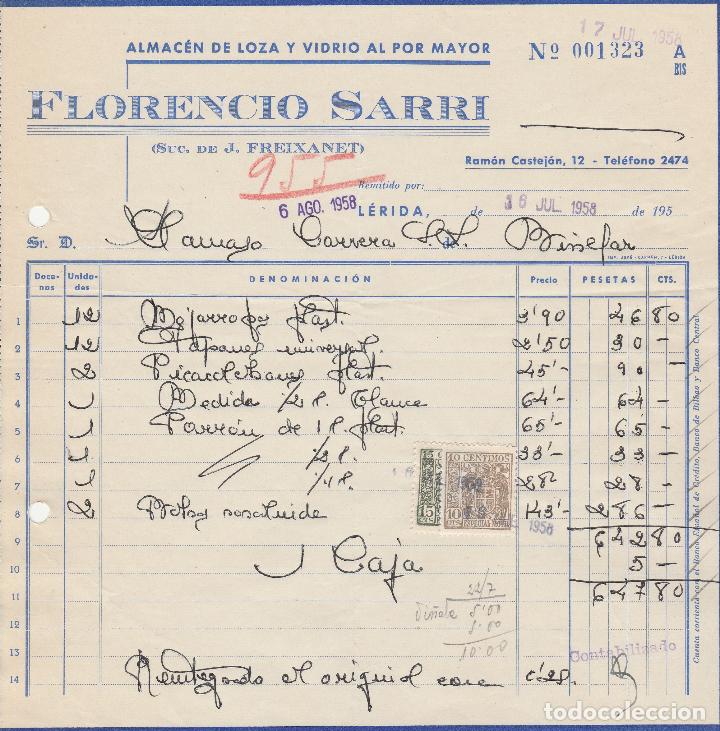 17 JUL. 1958
ALMACÉN DE LOZA Y VIDRIO AL POR MAYOR
Nº 001323 A BIS
FLORENCIO SARRI
(SUC. DE J. FREIXANET)
Ramón Castején, 12 - Teléfono 2474
955
Remitido por:
6 AGO. 1958
LÉRIDA, de 16 JUL. 1958 de 195
Sr. D. Carrera de Binéfar
IMP. JOVÉ - CARMEN, 7 - LÉRIDA
Docenas Unidades DENOMINACIÓN Precio PESETAS CTS.
1 12 plast. 3'90 46 80
2 12 Tapones universal. 2'50 30 —
3 2 plast. 45'- 90 —
4 1 Medida 1/2 l. blanca 64'- 64 —
5 1 Porrón de 1 l. plast. 65'- 65 —
6 1 1/2 l. 33'- 33 —
7 1 1/4 l. 28'- 28 —
8 2 143'- 286 —
9 642 80
10 1 Caja 5 —
11 647 80
12
13
14 Reintegrado el original con 0'25.
15 CTS 15
10 CENTIMOS
10 CTS ESPECIAL MOVIL
1958
22/7
5'00
5'00
10'00
Contabilizado
Cuenta corriente con el Banco Español de Crédito, Banco de Bilbao y Banco Central
todocoleccion.net